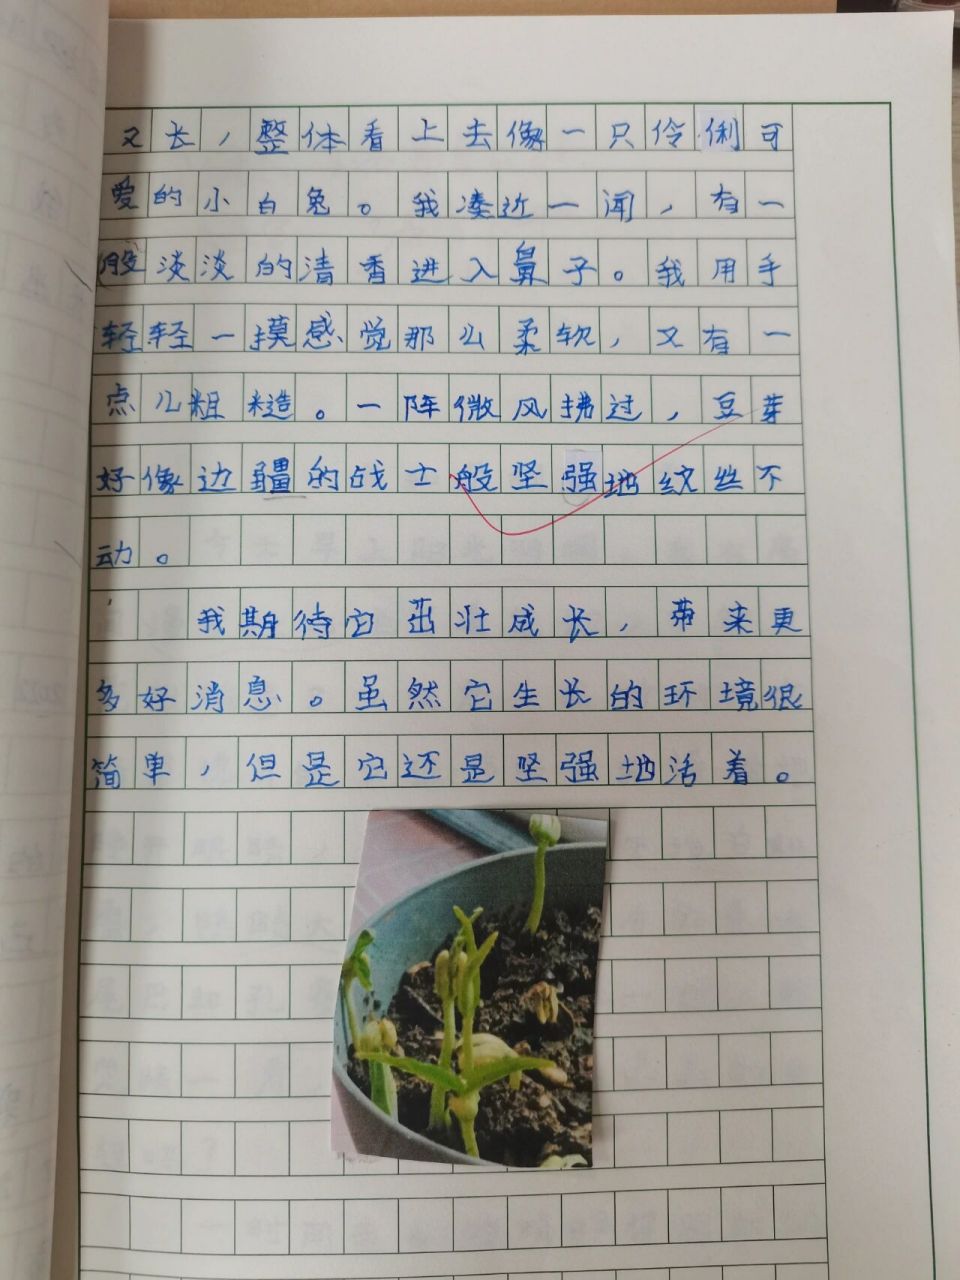 又长，整体看上去像一只伶俐可
爱的小白兔。我凑近一闻，有一
股淡淡的清香进入鼻子。我用手
轻轻一摸感觉那么柔软，又有一
点儿粗糙。一阵微风拂过，豆芽
好像边疆的战士般坚强地纹丝不
动。
我期待它茁壮成长，带来更
多好消息。虽然它生长的环境很
简单，但是它还是坚强地活着。